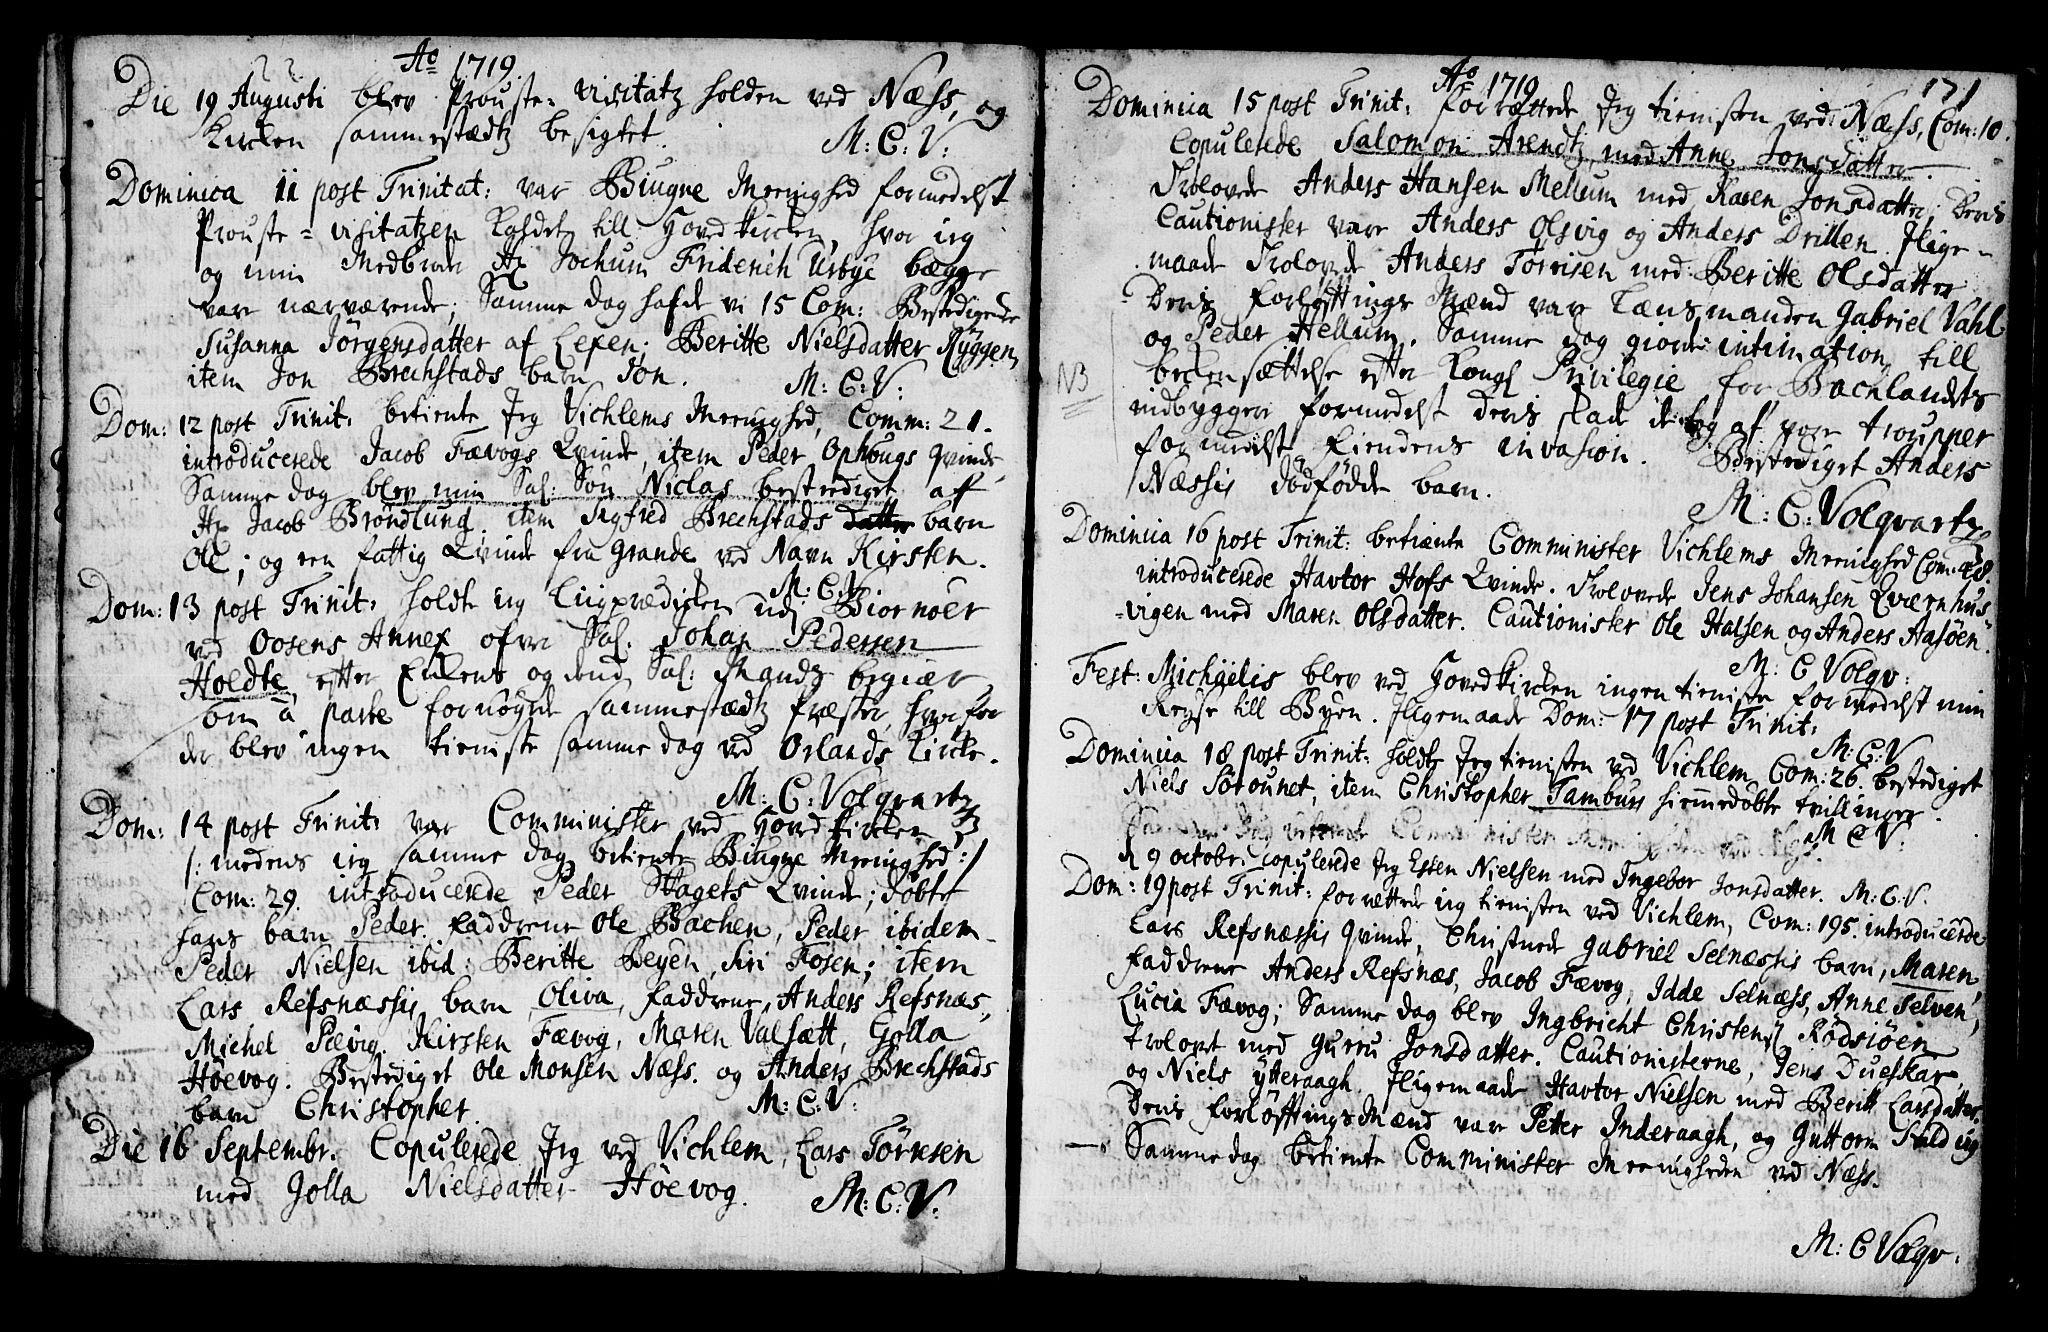 Ao 1719.
Die 19 Augusti blev Prouste-visitatz holden ved Næss, og
Kircken sammestædtz besigtet. M: C: V:
Dominica 11 post Trinitat: var Biugne Meenighed formedelst
Prouste-visitatzen kaldet till Hovedkircken, hvor ieg
og min Medbroder Hr Jochum Friderich Usbye begge
var nærværende; Samme dag hafde vi 15 Com: Bestedigede
Susanna Jörgensdatter af Lexen; Beritte Nielsdatter Ryggen,
item Jon Brechstads barn Jon. M: C: V:
Dom: 12 post Trinit: betiente Jeg Vichlems Meenighed, Comm: 21.
introducerede Jacob Fævogs Qvinde, item Peder Ophougs Qvinde
Samme dag blev min Sal: Sön Niclas bestediget af
Hr Jacob Bröndlund. item Sigfred Brechstads datter barn
Ole; og een fattig Qvinde fra Grande ved Navn Kirsten.
M: C: V:
Dom: 13 post Trinit: holdte ieg Liigprædicken udj Biornöer
ved Oosens Annex ofver Sal: Johan Pedersen
Holdte, efter Enkens og dend Sal: Mands begiær
som a parte fornöyede sammestædtz Præster, hvorfor
der blev ingen tieniste samme dag ved Örlands Kircke.
M: C: Volqvartz
Dom: 14 post Trinit: var Comminister ved Hovedkircken
/: medens ieg samme dag betiente Biugne Meenighed :/
Com: 29. introducerede Peder Hagets Qvinde; döbte
hans barn Peder. Faddrene Ole Bachen, Peder ibidem
Peder Nielsen ibid: Beritte Beyen, Siri Fosen; item
Lars Refsnæssis barn Oliva, Faddrene, Anders Refsnæs,
Michel Pævig, Kirsten Fævog, Maren Valsætt, Golla
Höevog. Bestediget Ole Monsen Næss. og Anders Brechstads
barn Christopher. M: C: V:
Die 16 Septembr. Copulerede Jeg ved Vichlem, Lars Törresen
med Golla Nielsdatter Höevog. M: C: V:
Ao 1719. 171
Dominica 15 post Trinit: forrettede Jeg tienisten ved Næss, Com: 10.
Copulerede Salomon Arendtz med Anne Jonsdatter.
Trolovede Anders Hansen Mellum med Karen Jonsdatter; Deris
Cautionister vare Anders Olsvig og Anders Drillen. Jlige-
maade Trolovede Anders Törrisen med Beritte Olsdatter
Deris Forlöftings Mænd var Lænsmanden Gabriel Vahl
og Peder Hellum. Samme dag giordes intimation, till
NB
ydbyggere formedelst deris skade de tog af vore troupper
formedelst Fiendens invasion. Bestediget Anders
Næssis dödfödde barn.
M: C: Volqvartz
Dominica 16 post Trinit: betiente Comminister Vichlems Meenighed Com: 28.
introducerede Havtor Hofs Qvinde. Trolovede Jens Johansen Qvernhus-
vigen med Maren Olsdatter. Cautionister Ole Halsen og Anders Aasöen.
M: C Volqv:
Fest: Michaelis blev ved Hovedkircken ingen tieniste formedelst min
Reyse till Byen. Jligemaade Dom: 17 post Trinit:
M: C: V
Dominica 18 post Trinit: holdte Jeg tienisten ved Vichlem, Com: 26. bestediget
Niels Sörounet, item Christopher Tamburs hiemedöbte tvillinger.
M C V:
d 9 octobr. copulerede Jeg Essen Nielsen med Ingebor Jonsdatter. M: C: V.
Dom: 19 post Trinit: forrettede ieg tienisten ved Vichlem, Com: 195. introducerede
Lars Refsnæssis Qvinde, Christnede Gabriel Selnæssis barn, Maren,
Faddrene Anders Refsnæs, Jacob Fævog, Idde Selnæss, Anne Selven,
Lucia Fævog; Samme dag blev Ingbricht Christens: Rödsiöen
Trolovet med Gurru Jonsdatter. Cautionisterne, Jens Dueskar
og Niels Ytteraagh. Jligemaade Havtor Nielsen med Beritt Larsdatter.
Deris Forlöfftings Mænd vare Petter Inderaagh, og Guttorm
Samme dag betiente Comminister Meenigheden ved Næss.
M: C Volqv: